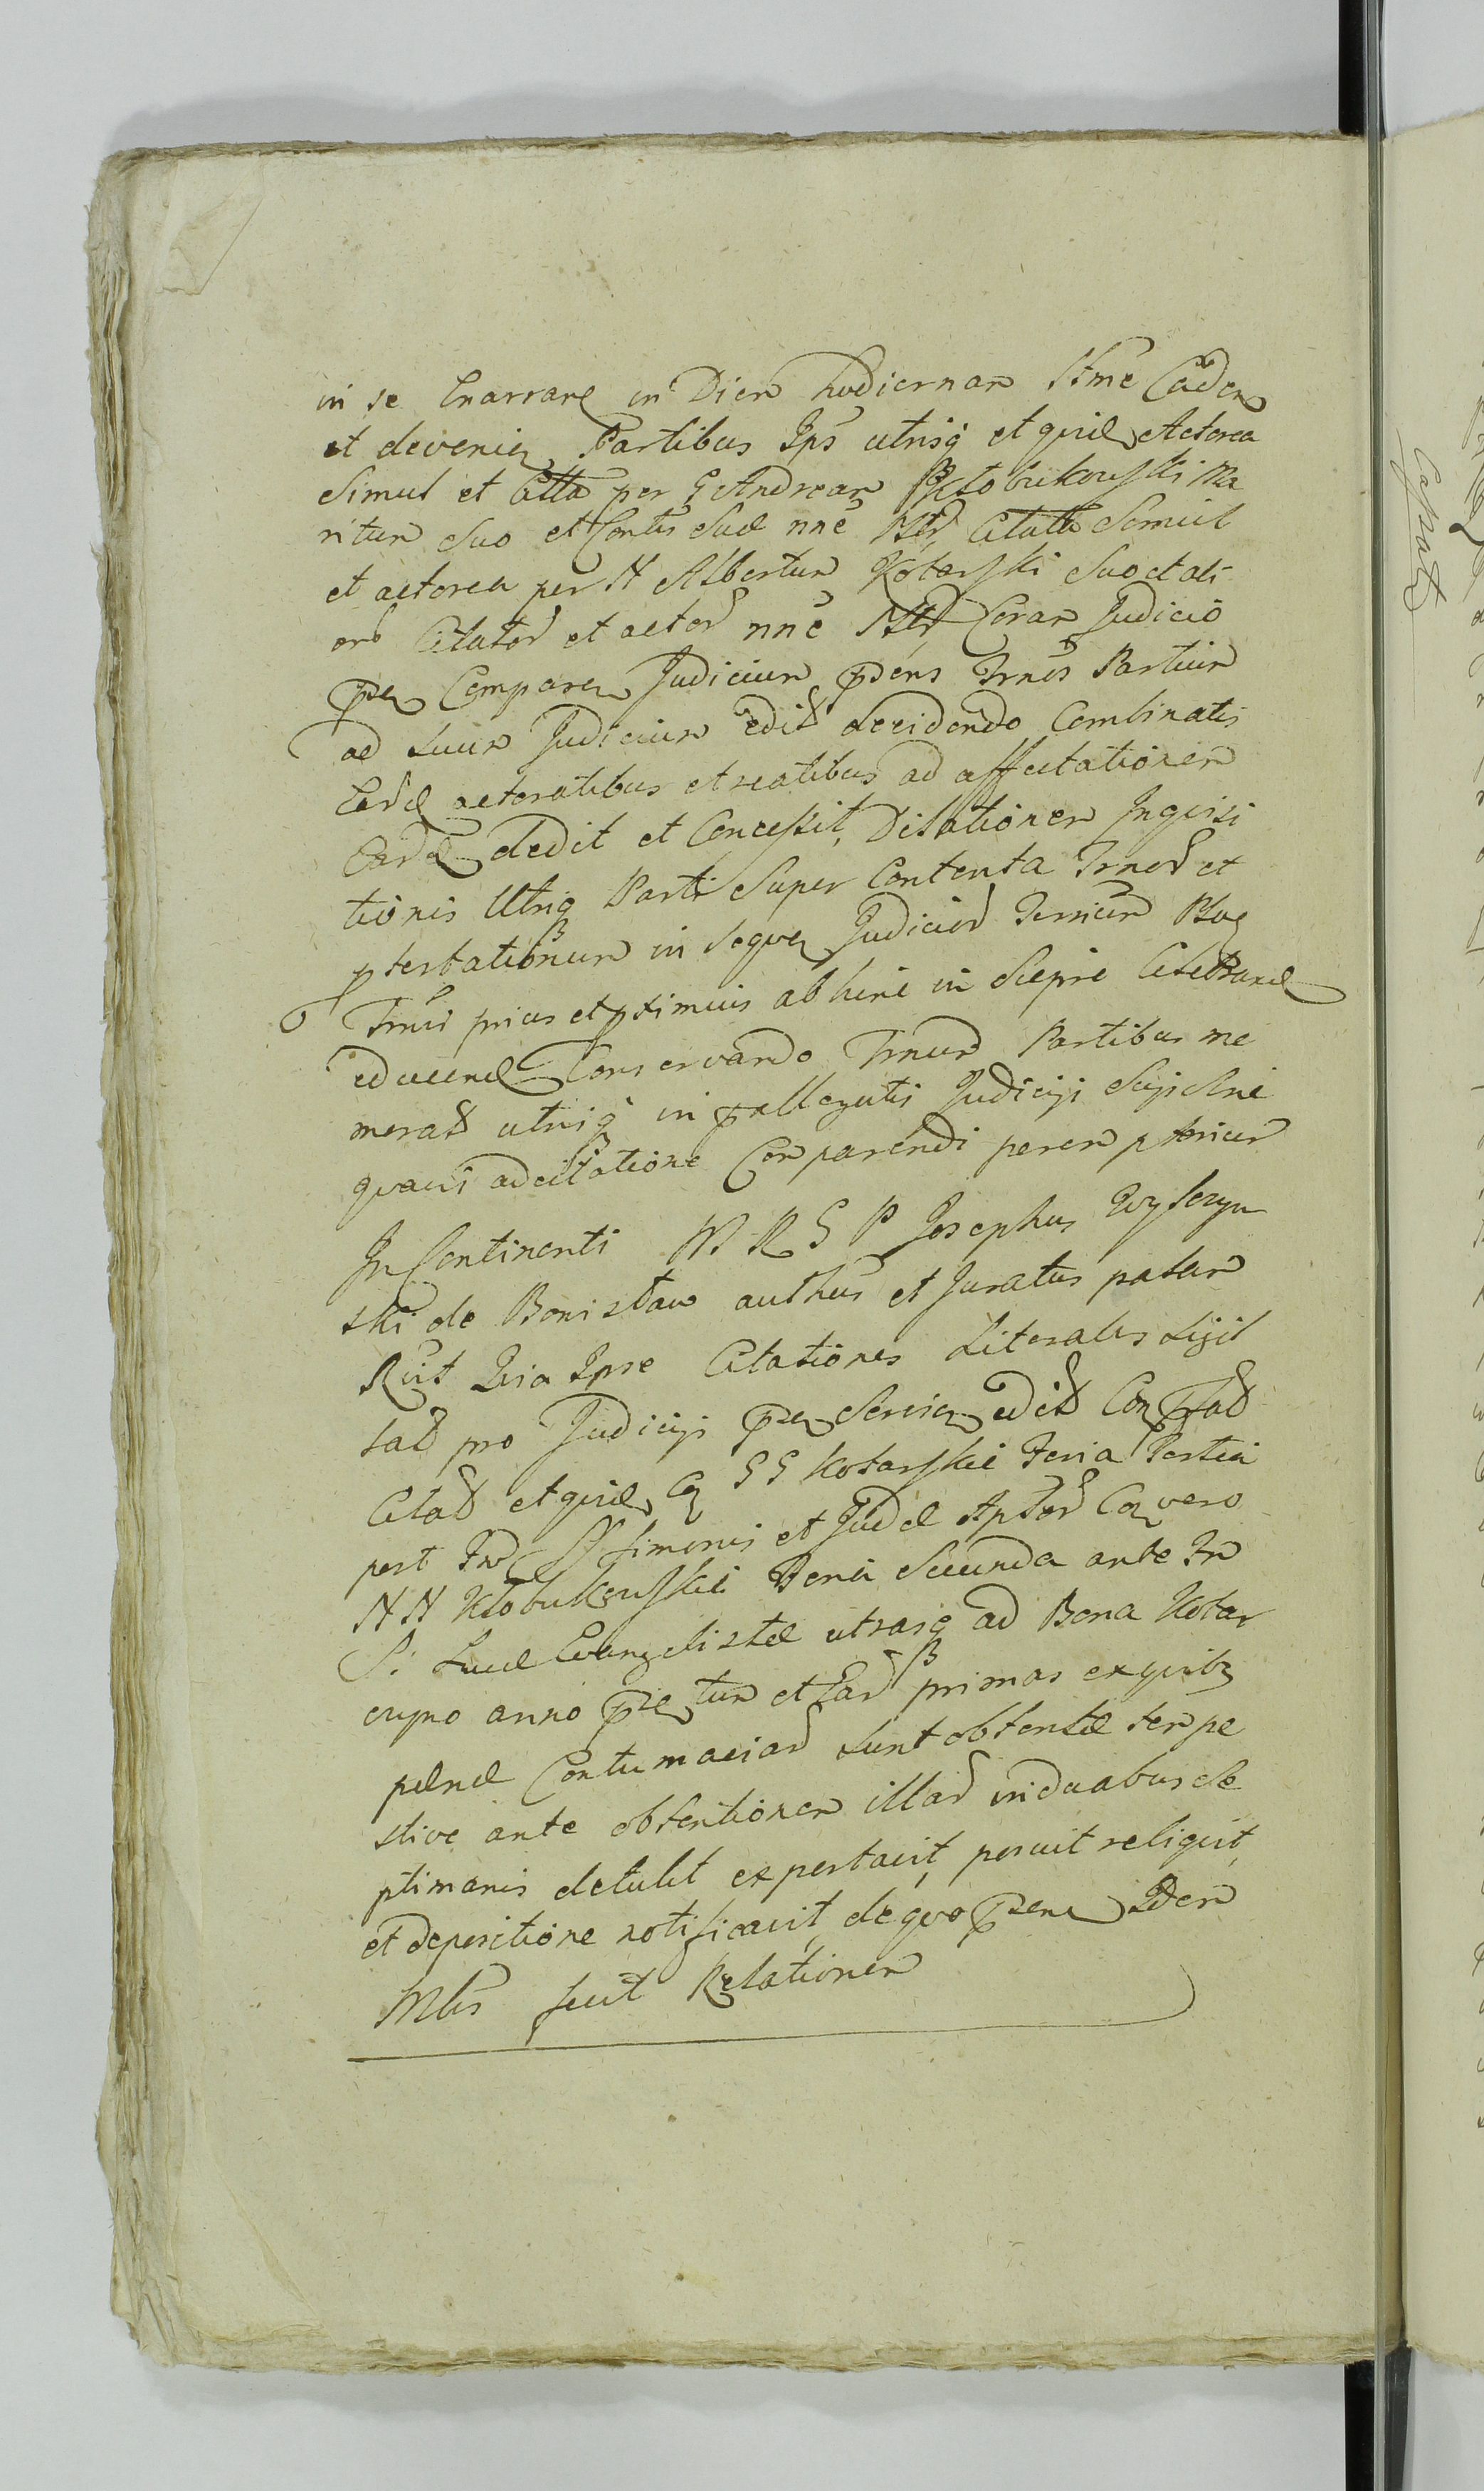 in se Enarran in Diem hodiernam Caden
et devenien Partibus Ips utrisq et quid Actorea
simul et Citta per G Andream Kłobukowski Ma
ritum suo et Contis suæ nne Citata Simul
et actorea per N Albertum Kotarski suo et ali
orū Citator et actor nne Coram Judicio
pn Comparen Judicium pdens Trnos Partium
ad suum Judicium edit decidendo Combinatis
actoratibus et reatibus ad affectationem
dedit et Concessit, Dilationem Inquisi
tionis Utriq Parti super Contenta Trnor et
ptestationum in seque Judicior Terrium
Trnis prius et pximius abhinc in Scepie Celebrand
educend Conservando Trnum Partibus me
morat utrisq in pallegatis Judicijs sine
quavis adcitatione Comparendi peremptorium
In Continenti M R G P Josephus Wyszczyn
ski de Bonisław authus et Juratus palam
Rvit Quia Ipse Citationes Literales Sigil
lat pro Judicijs pn Servien edit Con
Citat et quid Co GG Kotarskie Feria Tertia
post SS Simonis et Judæ Aptor Co vero
NN Kłobukowskie Feria Secunda ante
S. Lucæ Evangelistæ utrasq ad Bona Kotar
czyno anno et primas ex quib
pænæ Contumaciar sunt obtentæ tempe
stive ante obtentionem illar in duabus Se
ptimanis detulit exportavit, posuit reliquit,
et depositione notificavit, de quo psens Idem
Mlis fecit Relationem